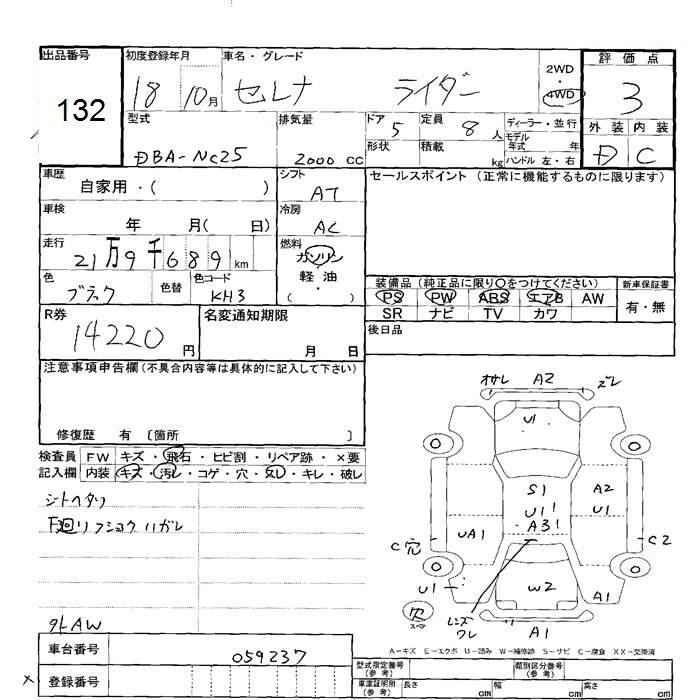 出品番号 初度登録年月 車名・グレード 2WD 評価点
132 18 10月 セレナ ライダー ・ 4WD 3
型式 排気量 ドア 5 定員 8人 ディーラー・並行 外装 内装
DBA-NC25 2000cc 形状 積載 kg モデル年式 年 D C
ハンドル 左・右
車歴 シフト セールスポイント (正常に機能するものに限ります)
自家用・( ) AT
車検 冷房
年 月( 日) AC
走行 燃料
21万9千689km ガソリン
軽油
・
( )
色 色替 色コード 装備品 (純正品に限り○をつけてください) 新車保証書
ブラック KH3 PS PW ABS エアB AW 有・無
R券 名変通知期限 SR ナビ TV カワ
14220円 月 日 後日品
注意事項申告欄 (不具合内容等は具体的に記入して下さい)
修復歴 有 〔箇所 〕
検査員 FW キズ・飛石・ヒビ割・リペア跡・×要
記入欄 内装 キズ・汚レ・コゲ・穴・スレ・キレ・破レ
シートヘタリ
F廻リフショクハガレ
外AW
オサレ A2 ズレ
U1
S1 A2
U1 U1
A31
UA1
C穴 C2
U1 W2 A1
穴 スペア
レンズワレ
A1
A-キズ E-エクボ U-凹み W-補修跡 S-サビ C-腐食 XX-交換済
車台番号 059237
登録番号
型式指定番号(参考) 類別区分番号(参考)
車庫証明用(参考) 長さ cm 幅 cm 高さ cm